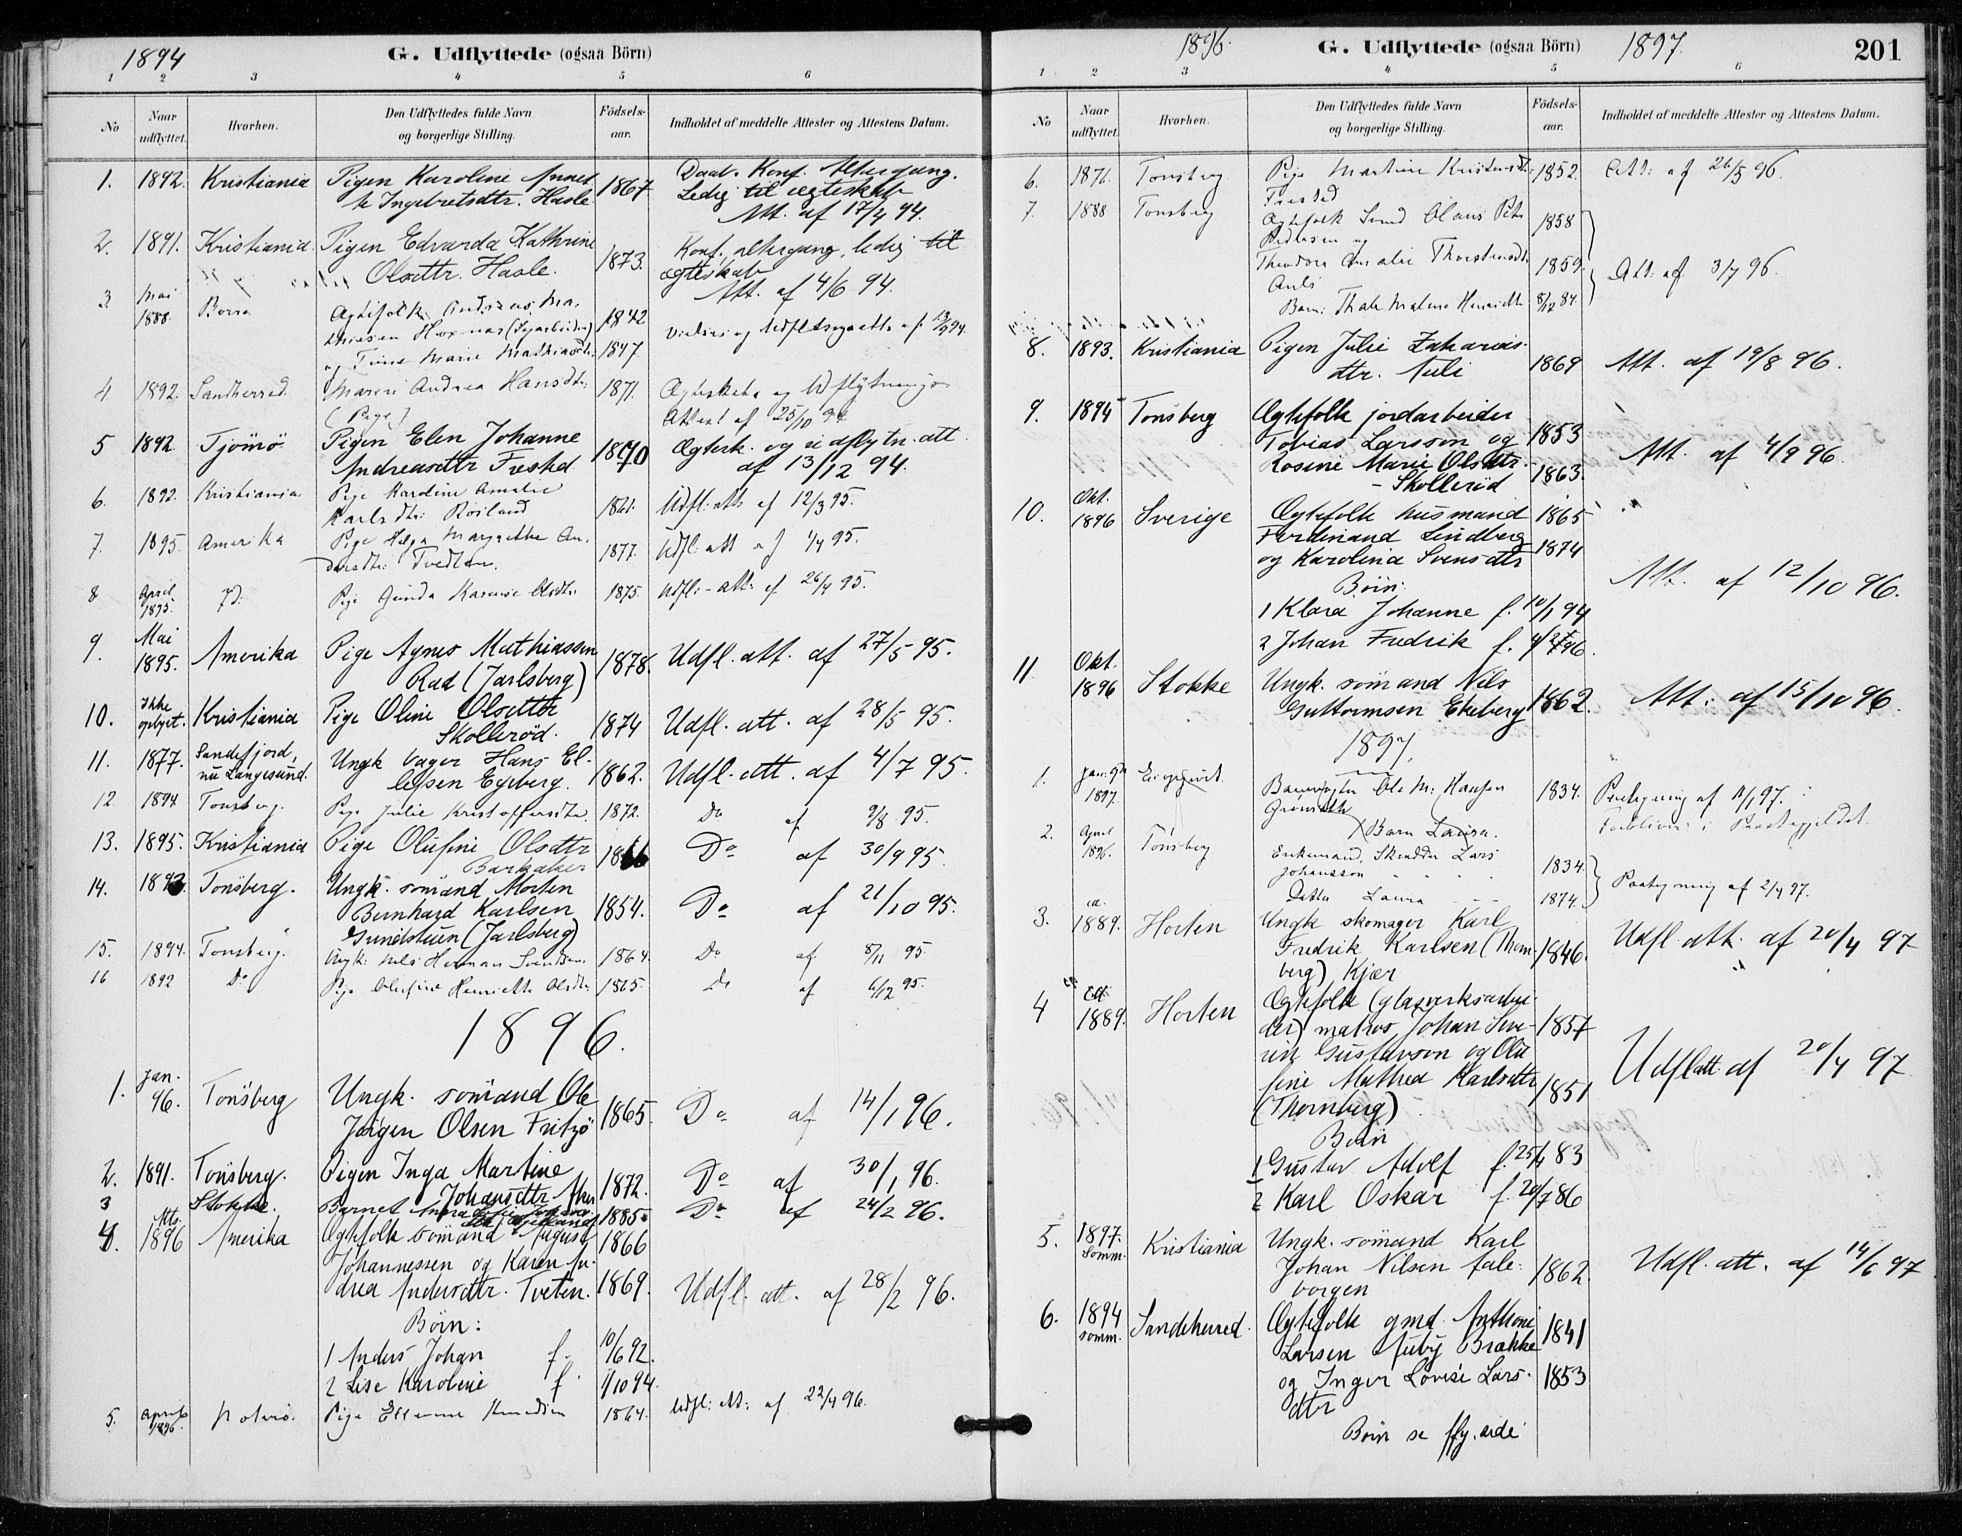 1894
G. Udflyttede (ogsaa Börn)
1 2 3 4 5 6
No
Naar udflyttet.
Hvorhen.
Den Udflyttedes fulde Navn og borgerlige Stilling.
Födsels-aar.
Indholdet af meddelte Attester og Attestens Datum.
1. 1892. Kristiania Pigen Karoline 1867. Daab. Konf. Altergang.
Ingebretsdtr. Hasle Ledig til ægteskab
Att. af 17/4 94.
2. 1891. Kristiania. Pigen Edvarda Kathrine 1873. Konf. altergang, ledig til
Olsdtr. Hasle. ægteskab
Att. af 4/6 94.
3. Mai 1888. Borre Ægtefolk Andreas Ma- 1842
thiesen
og Trine Marie Mathiasdtr. 1847
4 1892. Sandherred. Maren Andrea Hansdtr. 1871. Ægteskabs og Udflytnings
(Pige) Attest af 25/10 94
5 1892 Tjömö Pigen Elen Johanne 1870 Ægtesk. og udflytn. att.
Andreasdtr Frested af 13/12 94.
6. 1892. Kristiania Pige Karoline Amalie
Karlsdtr. Roiland Udfl: att. af 12/3 95.
7. 1895. Amerika Pige Helga Margrethe An-
dersdtr: Tvedten. 1877. Udfl: att af 1/4 95.
8 April 1895. Pige Gunda Olsdtr. 1875. Udfl:- att. af 26/4 95.
9. Mai 1895. Amerika Pige Agnes Mathiassen 1878. Udfl. att. af 27/5 95.
Rad (Jarlsberg)
10. Ikke opgivet. Kristiania Pige Oline Olsdttr 1874 Udfl. att. af 28/5 95.
Skollerød.
11. 1877. Sandefjord, nu Langesund. Ungk bager Hans El-
lefsen Egeberg. 1862. Udfl. att. af 4/7 95.
12. 1894 Tonsberg. Pige Julie Kristoffersdtr. 1872. Do af 9/8 95.
13. 1895. Kristiania Pige Olufine Olsdttr 1866 Do af 30/9 95.
Barkaker
14. 1893. Tonsberg. Ungk. sömand Morten
Bernhard Karlsen 1854. Do af 21/10 95.
(Jarlsberg)
15. 1894. Tonsberg. Ungk: Nils Herman Svendsen. 1864. Do af 8/11 95.
16 1892 Do Pige Olufine Henriette Olsdtr 1865. Do af 6/12 95.
1896.
1. Jan. 96. Tonsberg Ungk. sömand Ole
Jørgen Olsen Fritzö 1865. Do af 14/1 96.
2. 1891. Tonsberg. Pigen Inga Martine
Johansdttr Aker 1872. Do af 30/1 96.
3 Stokke. Barnet 1885. Do af 24/2 96.
4. 1896 Amerika Ægtefolk sömand August 1866
Johannessen og Karen An-
drea Andersdttr. Tveten. 1869. Udfl. att. af 28/2 96.
Börn:
1 Anders Johan f. 10/6 92.
2 Lise Karoline f. 1/10 94.
5. April 1896. Nöterö. Pige Knudsen 1864. Udfl: att: af 22/4 96.
1896.
G. Udflyttede (ogsaa Börn)
1897.
201
1 2 3 4 5 6
No
Naar udflyttet.
Hvorhen.
Den Udflyttedes fulde Navn og borgerlige Stilling.
Födsels-aar.
Indholdet af meddelte Attester og Attestens Datum.
6. 1871. Tonsberg Pige Martine Kristensdtr. 1852. Att: af 26/5 96.
Frested
7. 1888 Tonsberg Ægtefolk Svend Olaus Peter 1858
Pedersen og
Theodora Amalie Thorstensdtr 1859. Att: af 3/7 96.
Auli
Barn: Thale Malene Henriette 8/12 84.
8. 1893. Kristiania Pigen Julie Zakarias-
dtr. Auli 1869 Att. af 19/8 96.
9. 1894 Tonsberg Ægtefolk jordarbeider
Tobias Larsson og 1853
Rosine Marie Olsdttr. 1863. Att. af 4/9 96.
- Skollerød
10. Okt. 1896 Sverige Ægtefolk husmand 1865
Ferdinand Lindberg
og Karolina Svensdtr 1874
Börn: Att. af 12/10 96.
1 Klara Johanne f. 10/1 94
2 Johan Fredrik f. 4/2 96.
11 Okt. 1896 Stokke Ungk. sömand Nils
Guttormsen Ekeberg 1862. Att. af 15/10 96.
1897.
1. Jan: 1897. Ei opgivet. Ole M: Hansen 1834. Paategning af 11/1 97.
Barn Laura.
2. April 1896. Tonsberg Enkemand, Skrædder Lars 1834.
Johansson
Datter Laura 1874. Paategning af 2/4 97.
3. ca. 1889. Horten Ungk skomager Karl
Fredrik Karlsen (Thorn- 1846. Udfl. att. af 20/4 97
berg) Kjær
4 ca 1889. Horten Ægtefolk (glasverksarbei-
der) matros Johan Seve- 1857
rin Gustavson og Olu-
fine Mathea Karlsdttr 1851 Udfl att. af 20/4 97
(Thornberg)
Börn
1 Gustav Adolf f. 25/4 83
2 Karl Oskar f. 20/7 86
5. 1897. Somm. Kristiania Ungk. sömand Karl
Johan Nilsen Jarle- 1862. Udfl. att. af 14/6 97
borgen
6. 1894 somm. Sandeherred. Ægtefolk gmd. Anthoni 1841
Larsen Auby Brække
og Inger Lovise Lars- 1853
dtr
Börn se flg. side